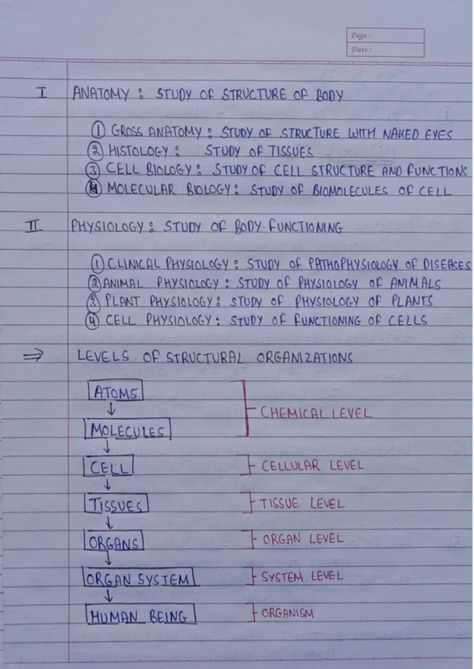 Page :
Date :
I ANATOMY : STUDY OF STRUCTURE OF BODY
① GROSS ANATOMY : STUDY OF STRUCTURE WITH NAKED EYES
② HISTOLOGY : STUDY OF TISSUES
③ CELL BIOLOGY : STUDY OF CELL STRUCTURE AND FUNCTIONS
④ MOLECULAR BIOLOGY : STUDY OF BIOMOLECULES OF CELL
II PHYSIOLOGY : STUDY OF BODY FUNCTIONING
① CLINICAL PHYSIOLOGY : STUDY OF PATHOPHYSIOLOGY OF DISEASES
② ANIMAL PHYSIOLOGY : STUDY OF PHYSIOLOGY OF ANIMALS
③ PLANT PHYSIOLOGY : STUDY OF PHYSIOLOGY OF PLANTS
④ CELL PHYSIOLOGY : STUDY OF FUNCTIONING OF CELLS
⇒ LEVELS OF STRUCTURAL ORGANIZATIONS
ATOMS
↓ CHEMICAL LEVEL
MOLECULES
↓
CELL CELLULAR LEVEL
↓
TISSUES TISSUE LEVEL
↓
ORGANS ORGAN LEVEL
↓
ORGAN SYSTEM SYSTEM LEVEL
↓
HUMAN BEING ORGANISM